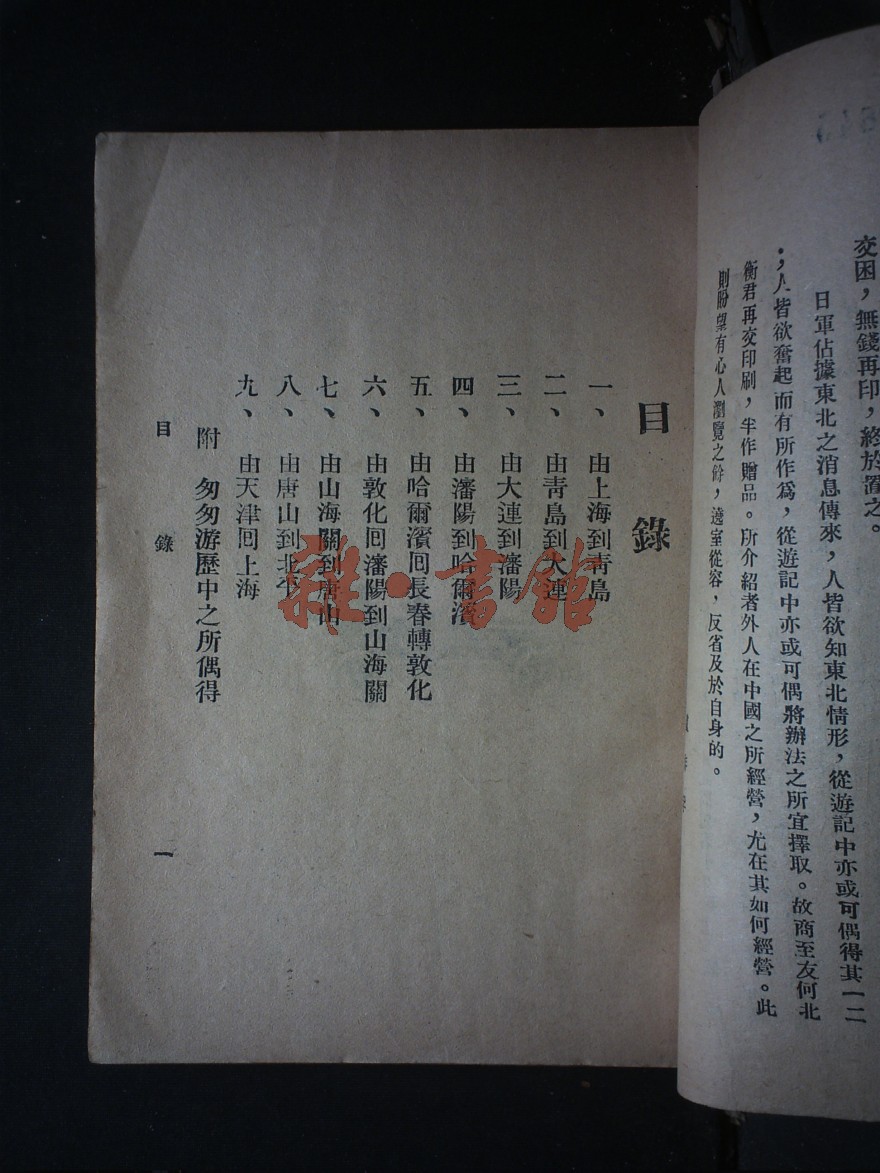 交困，無錢再印，終於置之。
日軍佔據東北之消息傳來，人皆欲知東北情形，從遊記中亦或可偶得其一二
；人皆欲奮起而有所作爲，從遊記中亦或可偶將辦法之所宜擇取。故商至友何北
衡君再交印刷，半作贈品。所介紹者外人在中國之所經營，尤在其如何經營。此
則盼望有心人瀏覽之餘，邃室從容，反省及於自身的。
目錄
一、由上海到青島
二、由青島到大連
三、由大連到瀋陽
四、由瀋陽到哈爾濱
五、由哈爾濱回長春轉敦化
六、由敦化回瀋陽到山海關
七、由山海關到唐山
八、由唐山到北平
九、由天津回上海
附 匆匆游歷中之所偶得
目錄
一
雜·書館